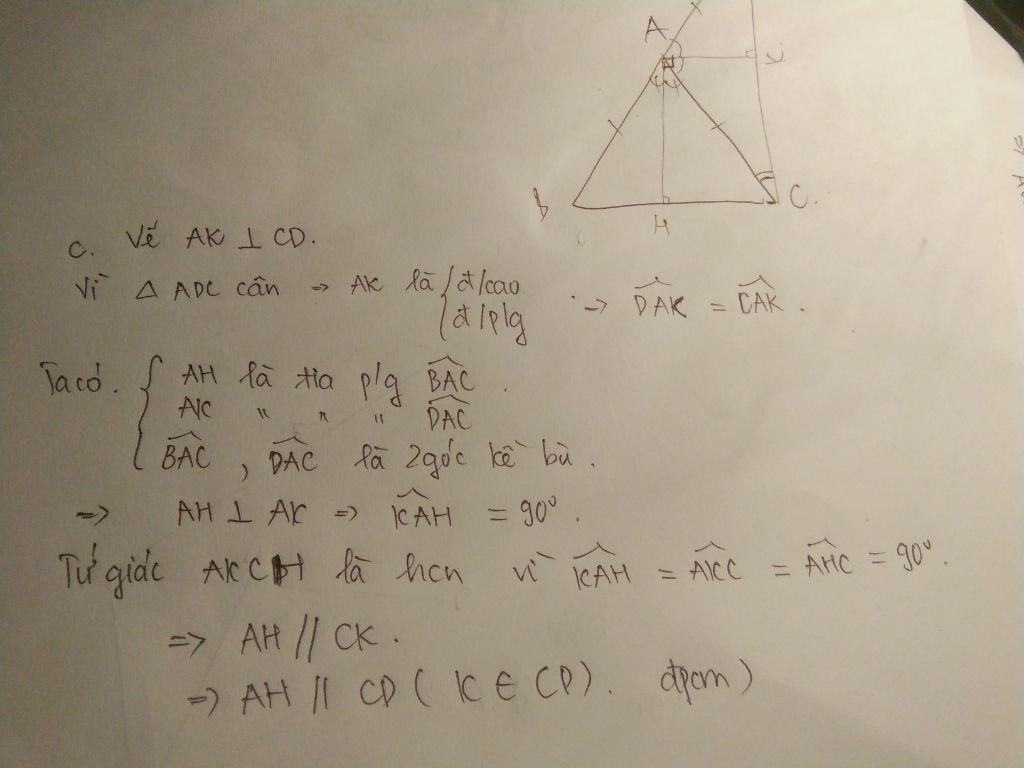 A
K
B
H
C.
c. Vẽ AK ⊥ CD.
Vì △ ADC cân → AK là { đ/cao
đ/p/g
→ \widehat{DAK} = \widehat{CAK}.
Ta có. { AH là tia p/g \widehat{BAC}.
AK " " " \widehat{DAC}
\widehat{BAC}, \widehat{DAC} là 2 góc kề bù.
=> AH ⊥ AK => \widehat{KAH} = 90°.
Tứ giác AKCH là hcn vì \widehat{KAH} = \widehat{AKC} = \widehat{AHC} = 90°.
=> AH // CK.
=> AH // CD (K ∈ CD). đpcm)